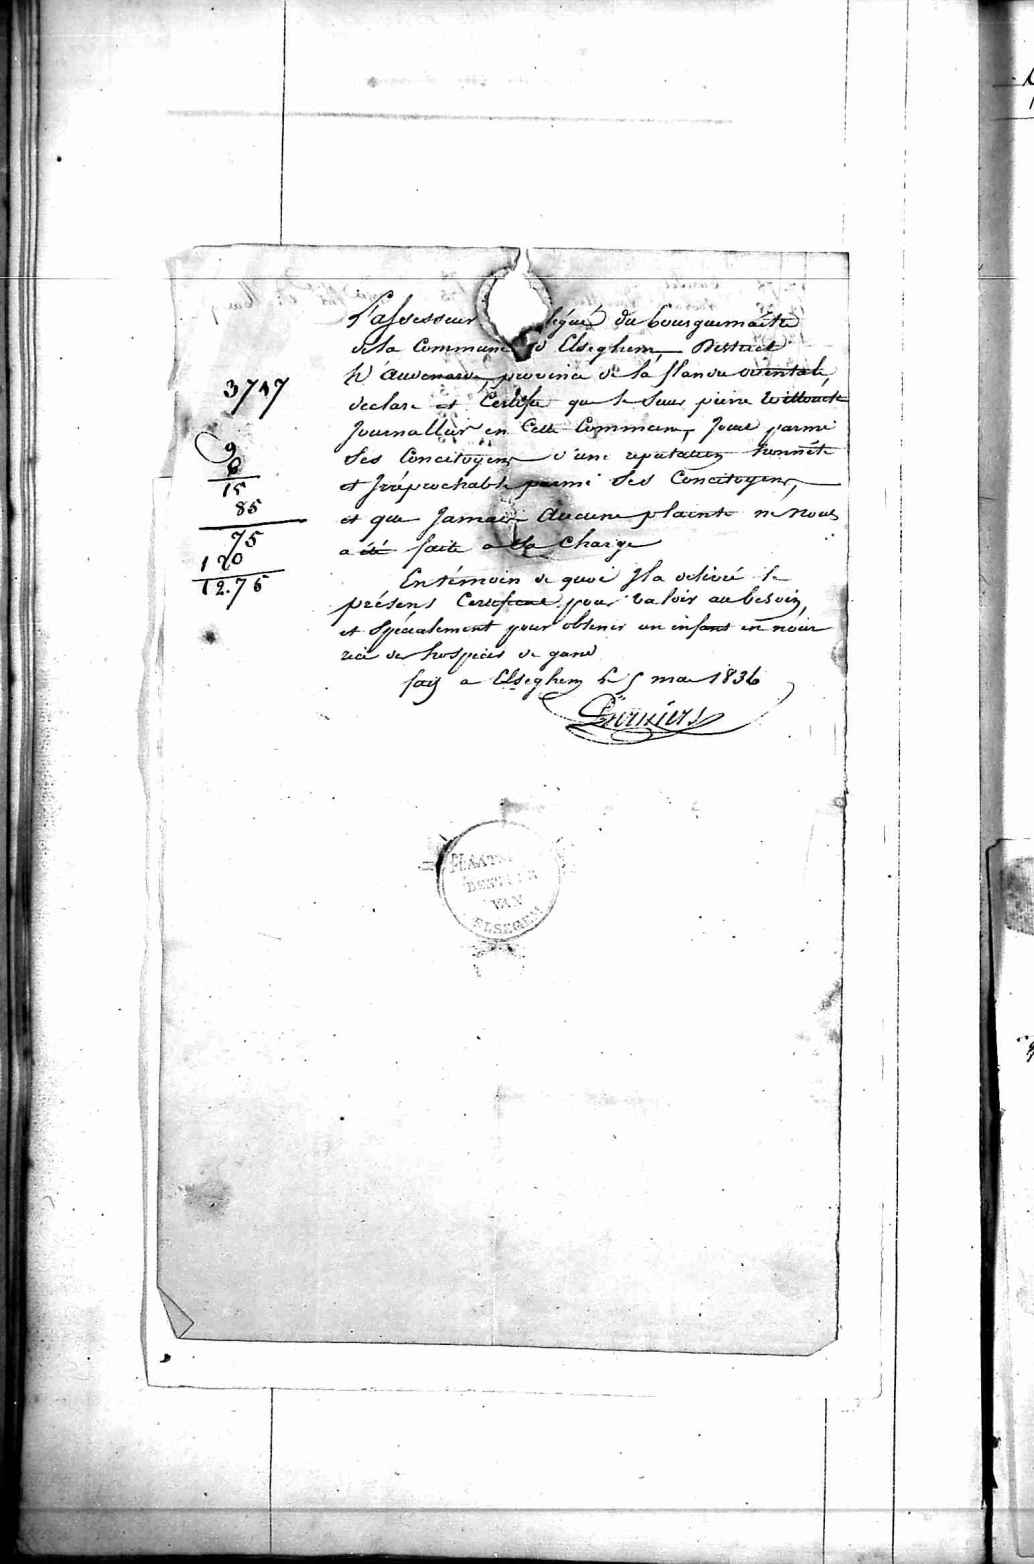 3747
9
6
15
85
75
120
12.75
L'assesseur légué du bourguemaitre
de la Commune d'Elseghem, District
D'audenarde, province de la flandre orientale,
declare et Certifie que le Sieur pierre Willocck
Journallier en Cette Commune, Jouit parmi
Ses Concitoyens d'une reputation honnête
et Irréprochable parmi Ses Concitoyens,
et que Jamais Aucune plainte ne nous
a été faite a Sa Charge
En témoin de quoi Il a delivré le
présent Certificat pour valoir au besoin,
et Spécialement pour obtenir un enfant en nour
rice des hospices de gand
fait a Elseghem le 5 mai 1836
PLAATS
BESTUUR
VAN
ELSEGEM